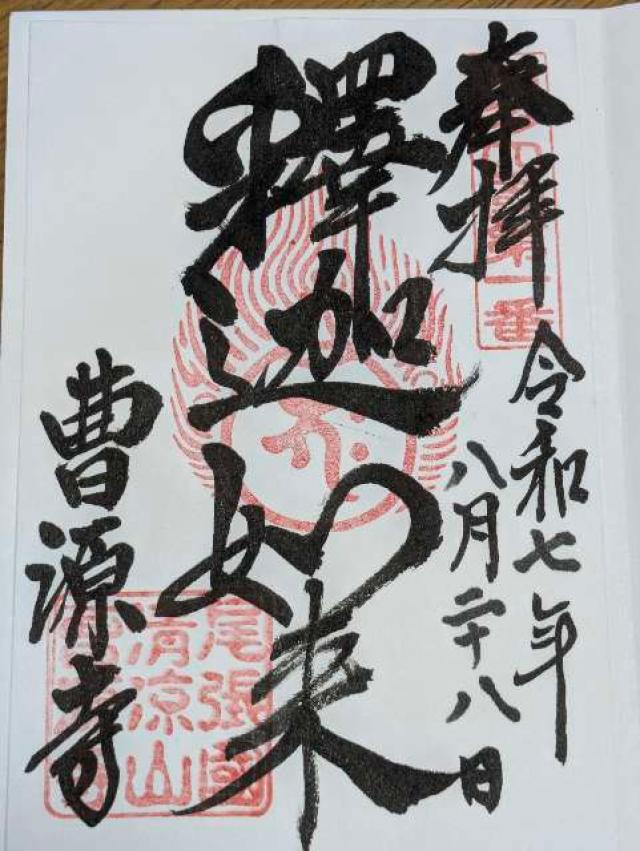 奉拝
令和七年
八月二十八日
釋迦如来
曹源寺
尾張國
清凉山